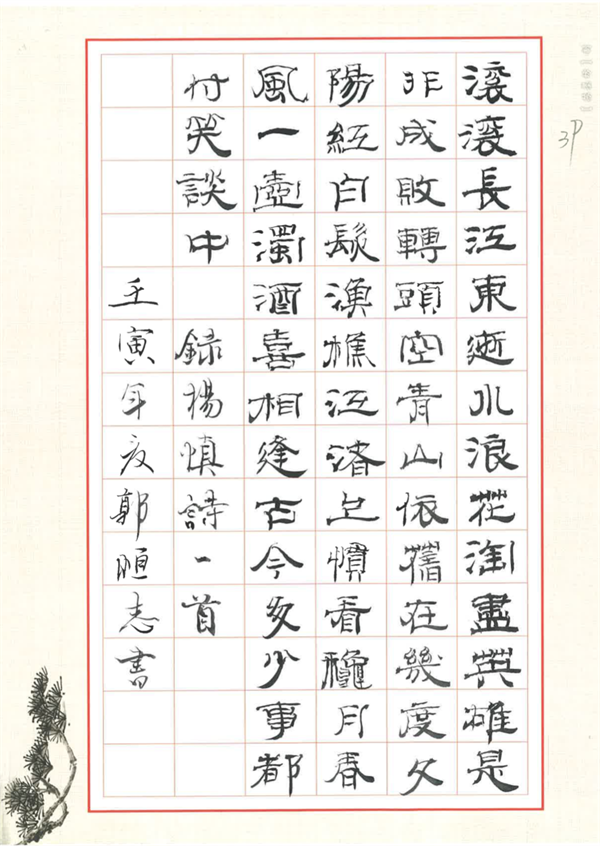 3P
滾滾長江東逝水浪花淘盡英雄是
非成敗轉頭空青山依舊在幾度夕
陽紅白髮漁樵江渚上慣看龝月春
風一壺濁酒喜相逢古今多少事都
付笑談中 録楊慎詩一首
壬寅年夏郭志書